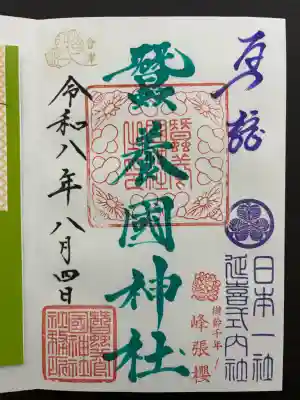 奉拝
日本一社
延喜式内社
樹齢千年!
峰張櫻
蠶養國神社
会津
令和八年八月四日